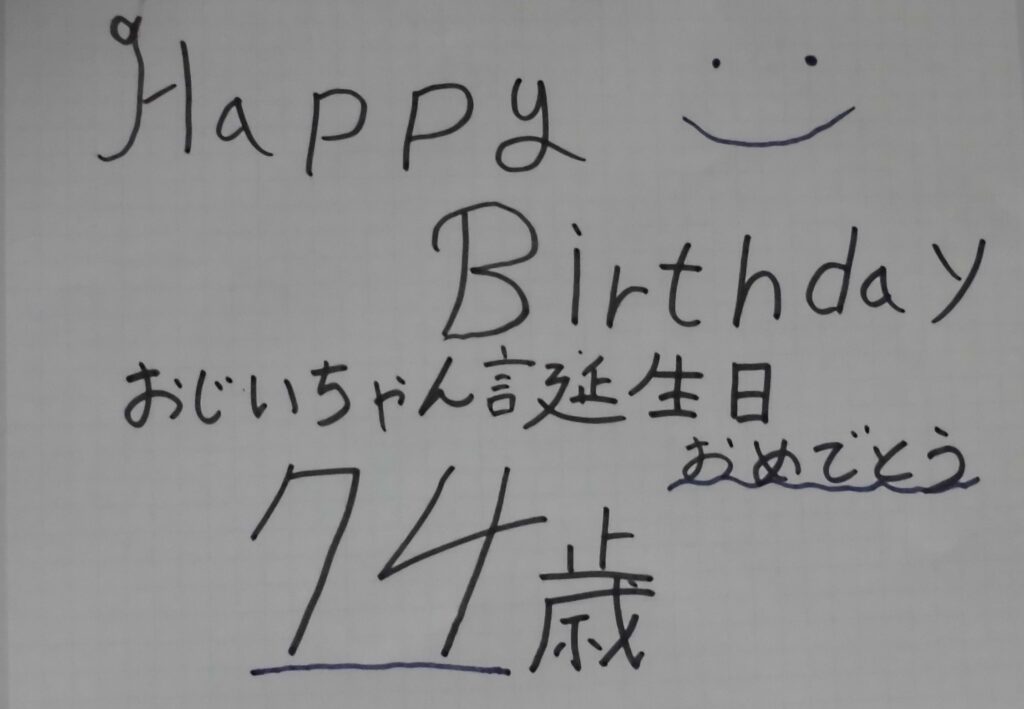 Happy
Birthday
おじいちゃん誕生日
おめでとう
74歳